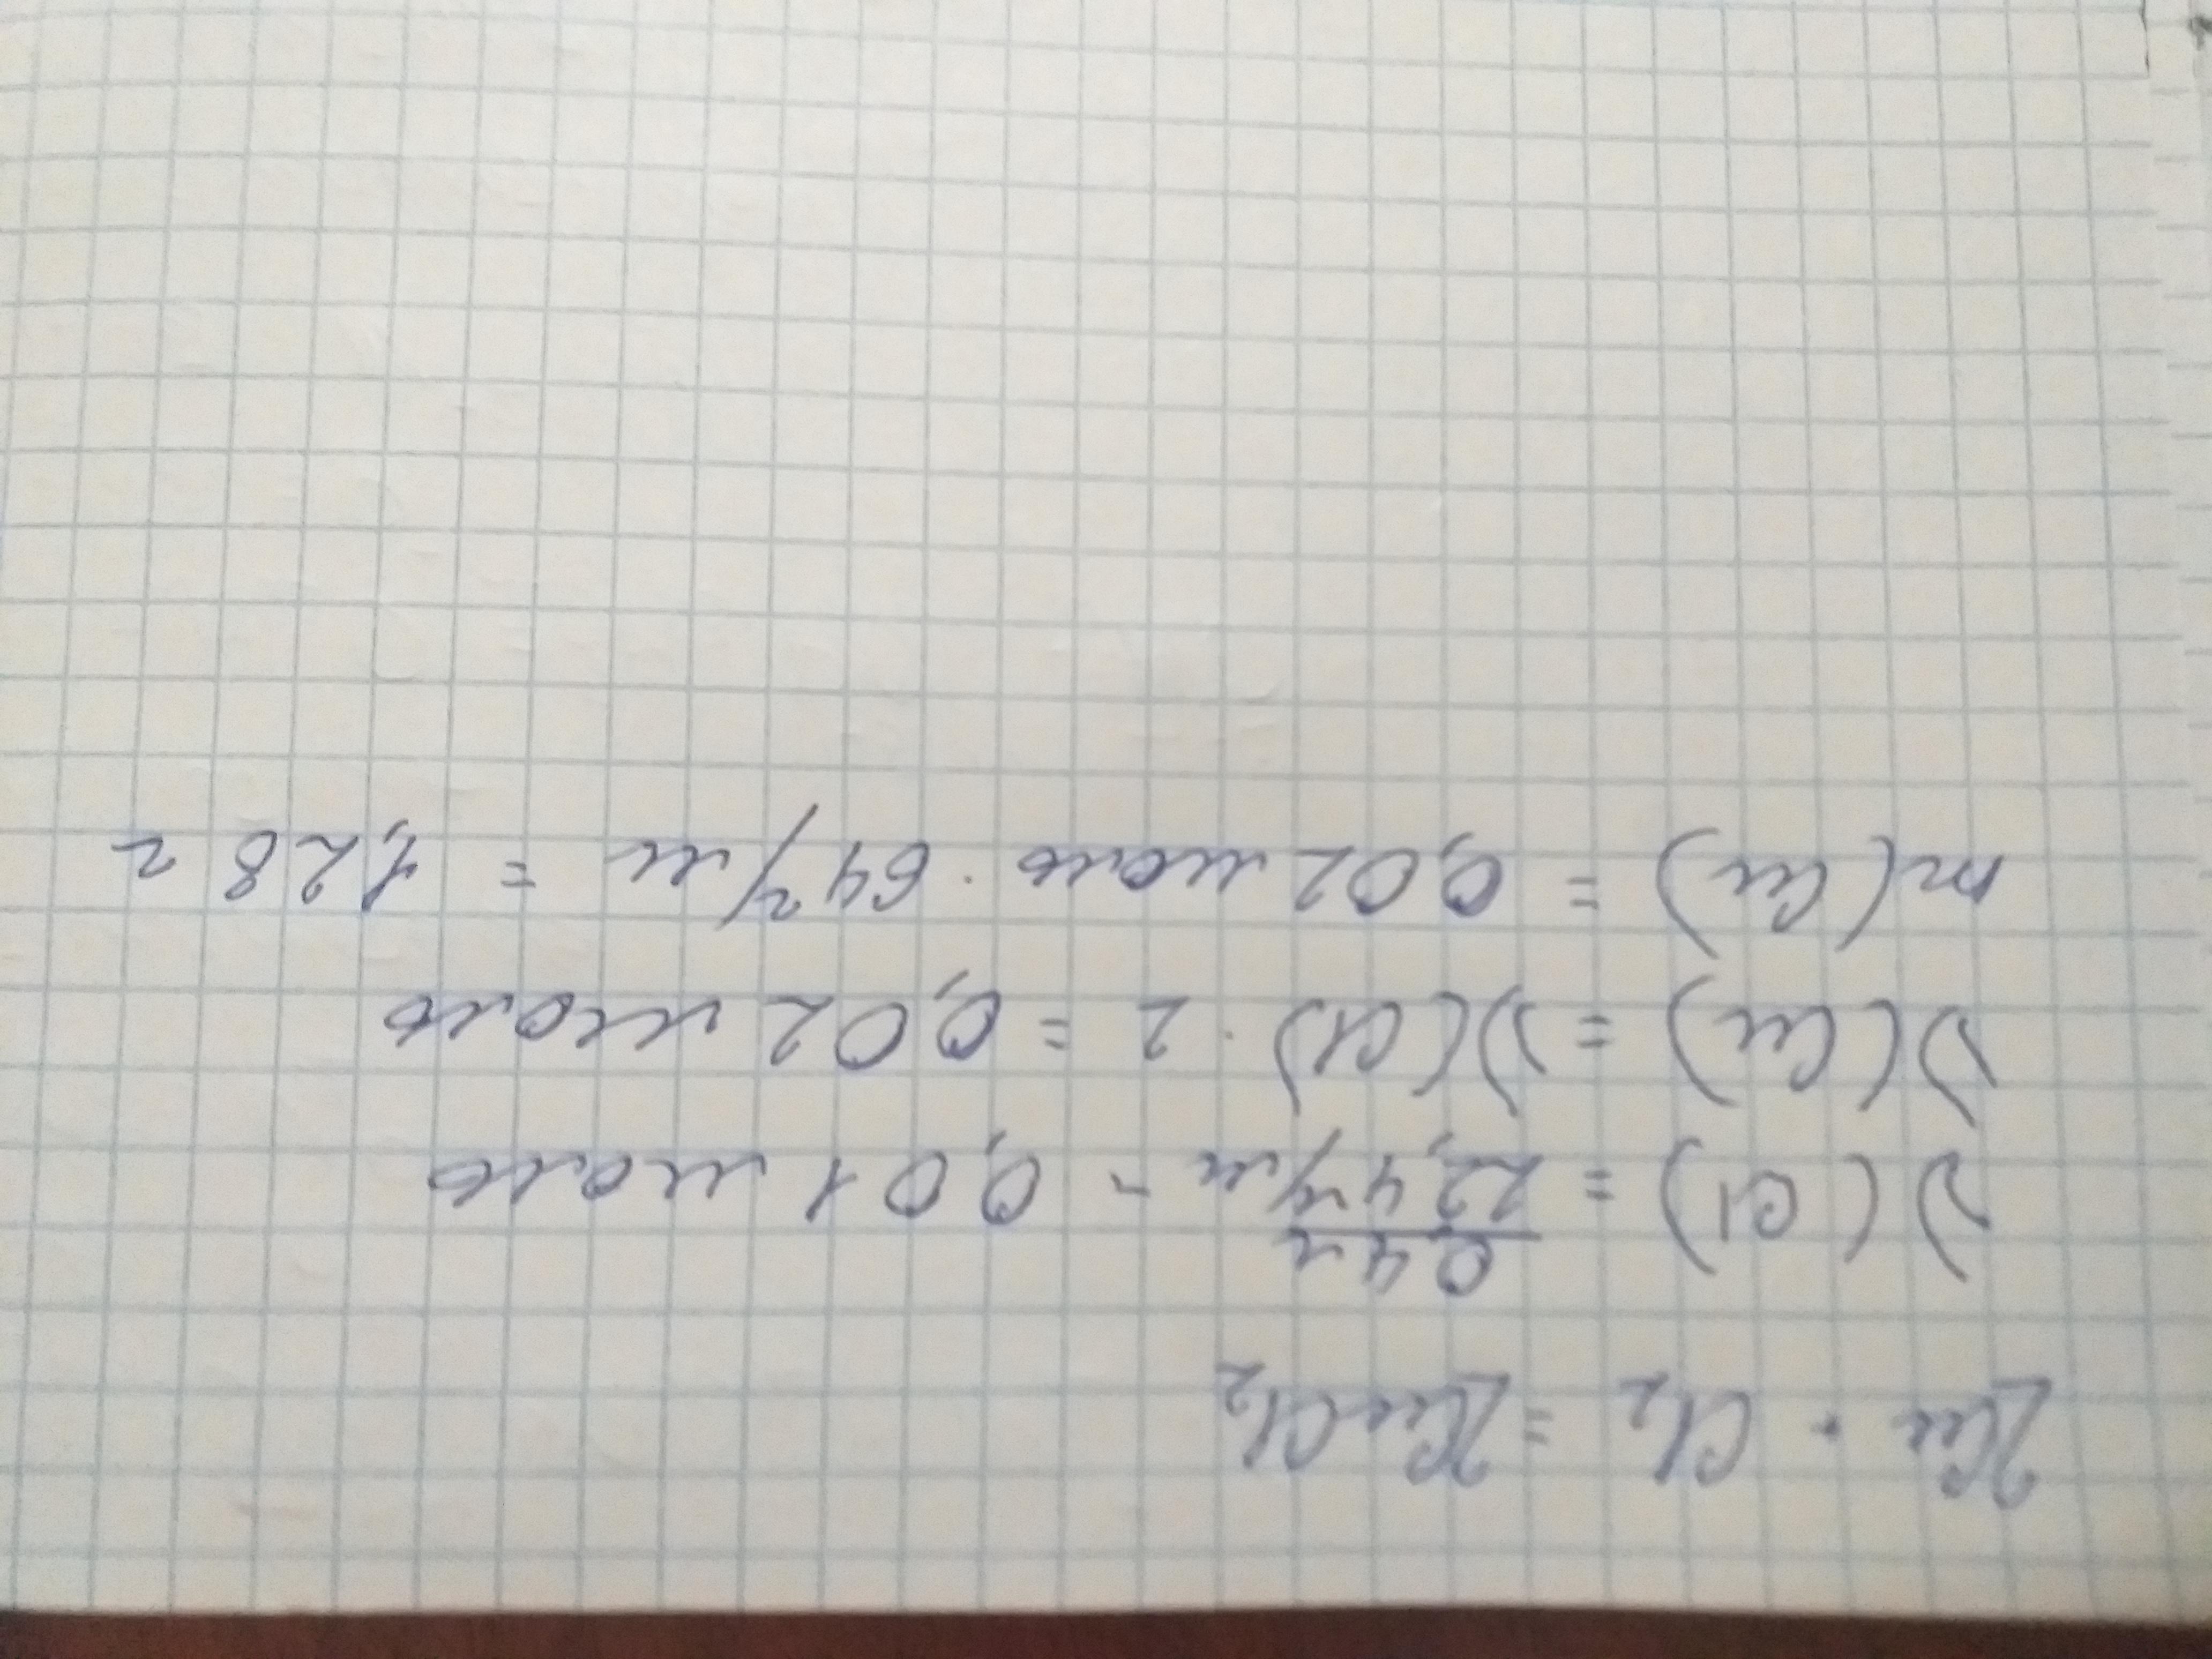 2Cu + Cl₂ = 2CuCl₂
ν(Cl) = 0,4 л / 22,4 л/м = 0,01 моль
ν(Cu) = ν(Cl) · 2 = 0,02 моль
m(Cu) = 0,02 моль · 64 г/м = 1,28 г